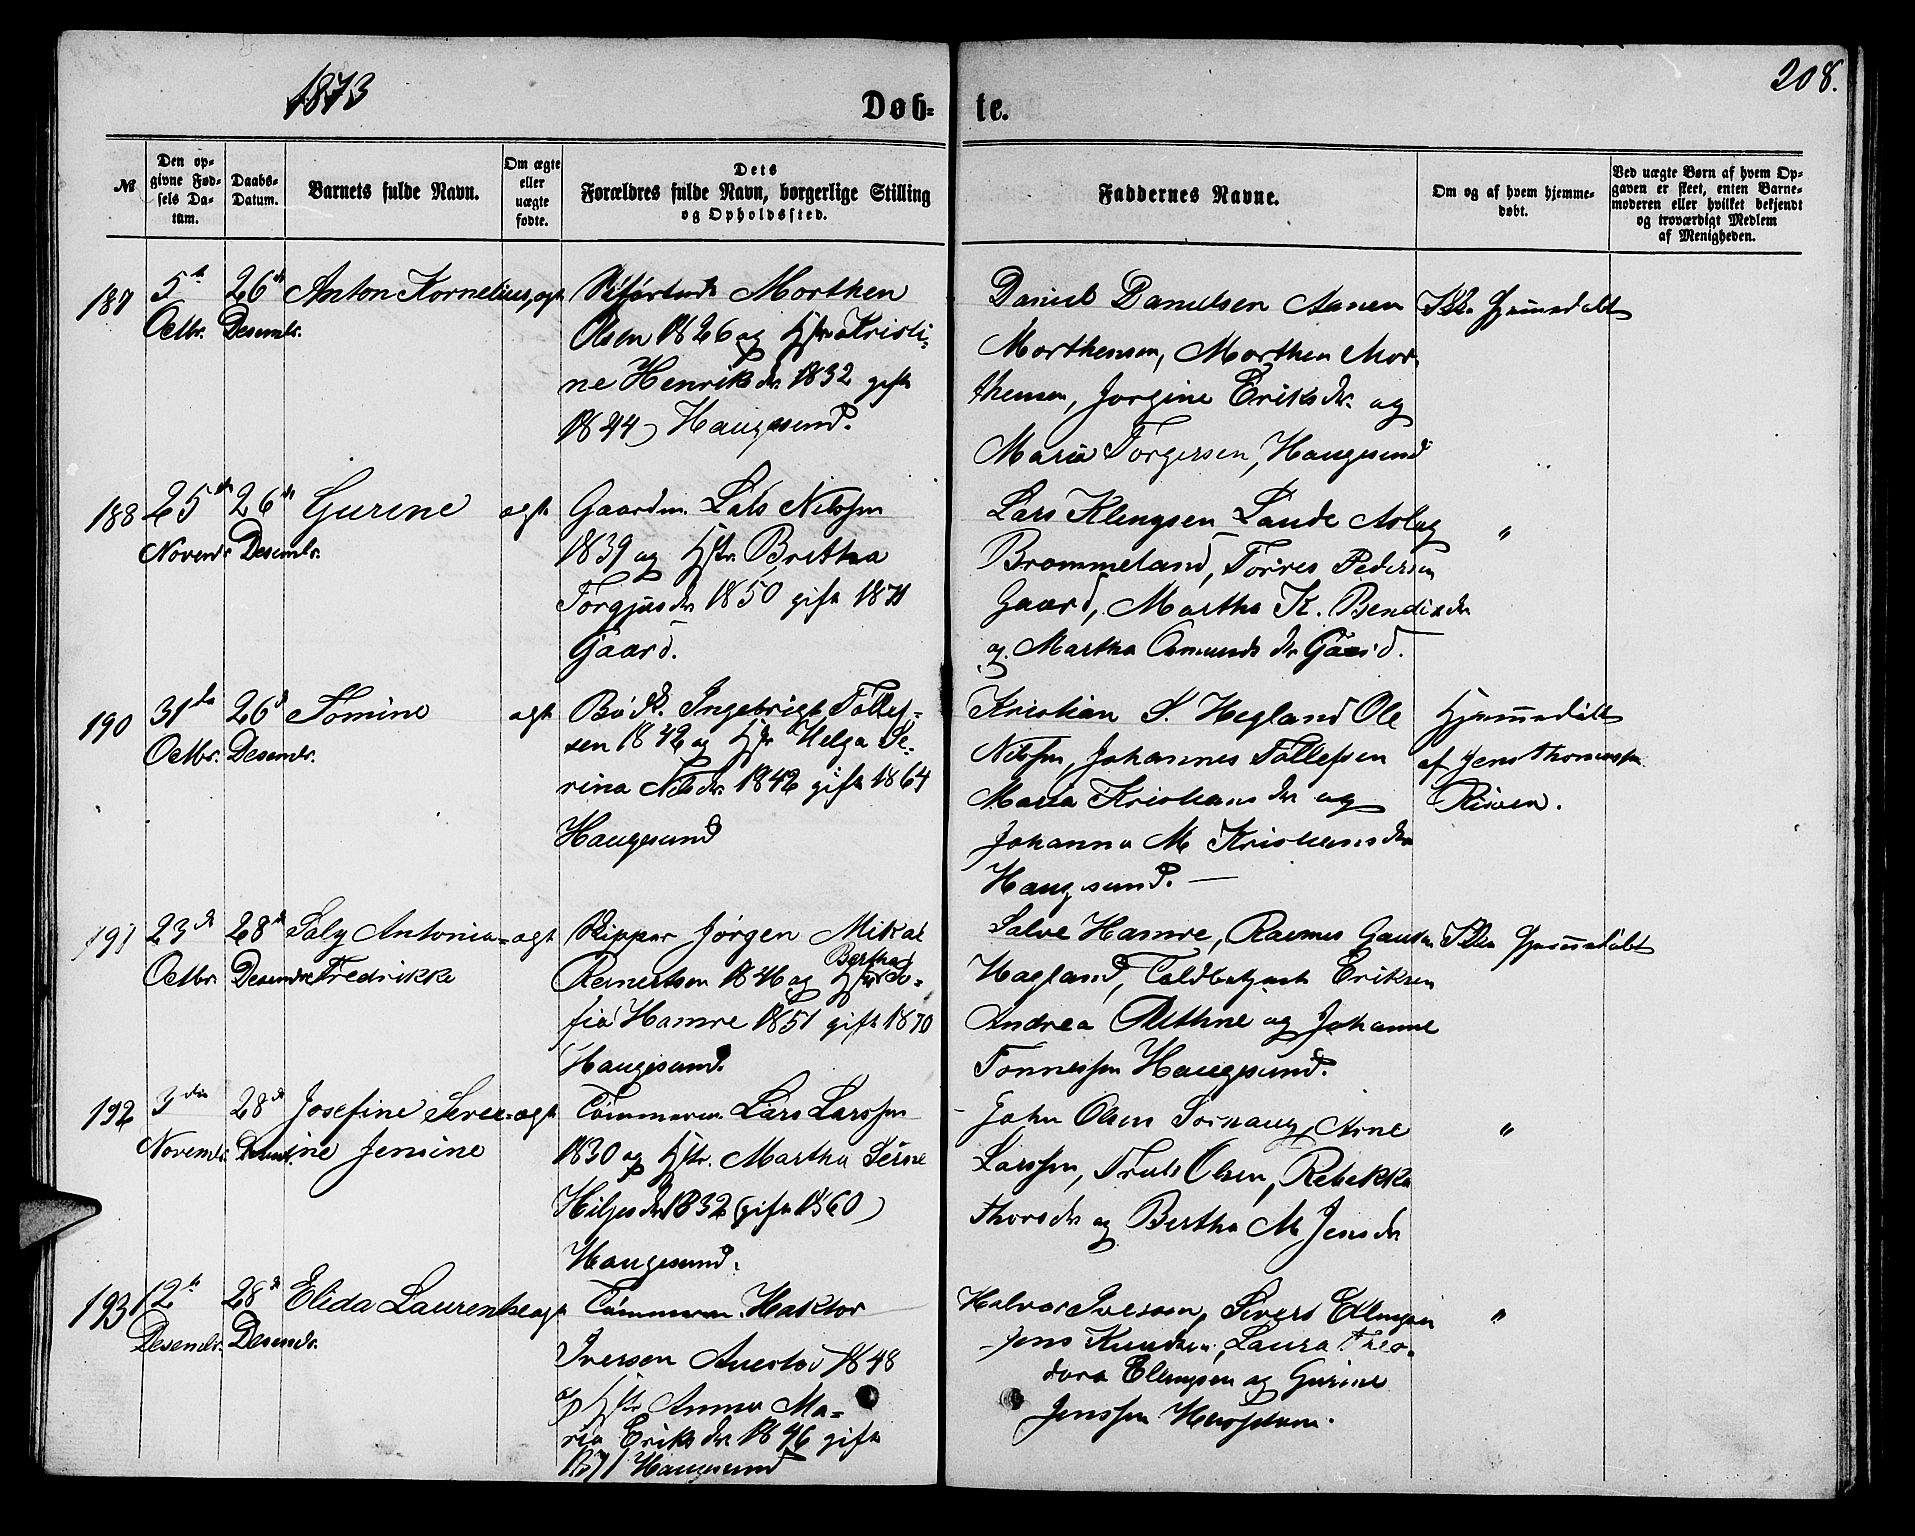 1873
208.
Døb- te.
№
Den opgivne Fødsels Datum.
Daabs-Datum.
Barnets fulde Navn.
Om ægte eller uægte fødte.
Dets Forældres fulde Navn, borgerlige Stilling og Opholdssted.
Faddernes Navne.
Om og af hvem hjemmedøbt.
Ved uægte Børn af hvem Opgaven er skeet, enten Barnemoderen eller hvilket bekjendt og troværdigt Medlem af Menigheden.
187 5te 26de Anton Kornelius, ægt
Octbr. Desembr.
Morthen
Olsen 1826 og Hstr Kristi-
ne Henriksdr. 1832 gift
1844) Haugesund.
Daniel Danielsen Aanen
Morthensen, Morthen Mor-
thensen, Jorgine Eriksdr. og
Maria Torgersen, Haugesund
Ikke Hjemmedøbt
188 25de 26de Gurine ægt
Novembr. Desembr.
Gaardm. Lars Nilssen
1839 og Hstr. Brittha
Torgjusdr 1850 gift 1871
Gaard.
Lars Klengsen Lande Aslag
Brommeland, Torres Pedersen
Gaard, Martha K. Bendixdr
og Martha Osmundsdr Gaard.
"
190 31de 26de Tomine ægt
Octbr. Desembr.
Bødk. Ingebrigt Tollef-
sen 1842 og Hstr Helga Se-
rina Nilsdr. 1842 gift 1864
Haugesund
Kristian S. Hegland Ole
Nilssen, Johannes Tollefsen
Maria Kristiansdr og
Johanna M Kristiansdr
Haugesund. —
Hjemmedøbt
af Jens Thomassen
Risøen.
191 23de 28de Saly Antonia- ægt
Octbr. Desembr. Fredrikke
Skipper Jørgen Mikal
Reinertsen 1846 og Hstr Bertha So-
fia Hamre 1851 gift 1870
Haugesund.
Salve Hamre, Rasmus Gautun
Hagland, Toldbetjent Eriksen
Andrea Rethne og Johanne
Tønnessen Haugesund.
Ikke Hjemmedøbt
192 3die 28de Josefine Seve- ægt
Novembr. Desembr. ine Jensine
Tømmerm. Lars Larssen
1830 og Hstr. Martha Serine
Hiljesdr 1832 (gift 1860)
Haugesund.
John Olsen Sørhaug, Arne
Larssen, Truls Olsen, Rebekka
Thorsdr og Bertha M Jensdr
"
193 12te 28de Elida Laurentse ægt
Desembr. Desembr.
Tømmerm. Haktor
Iversen Auestad 1848
og Hstr Anna Ma-
ria Eriksdr 1846 gift
1871 Haugesund
Halvor Iversen, Sivert Ellingsen
Jens Knudsen, Laura Theo-
dora Ellingsen og Gurine
Jenssen
"